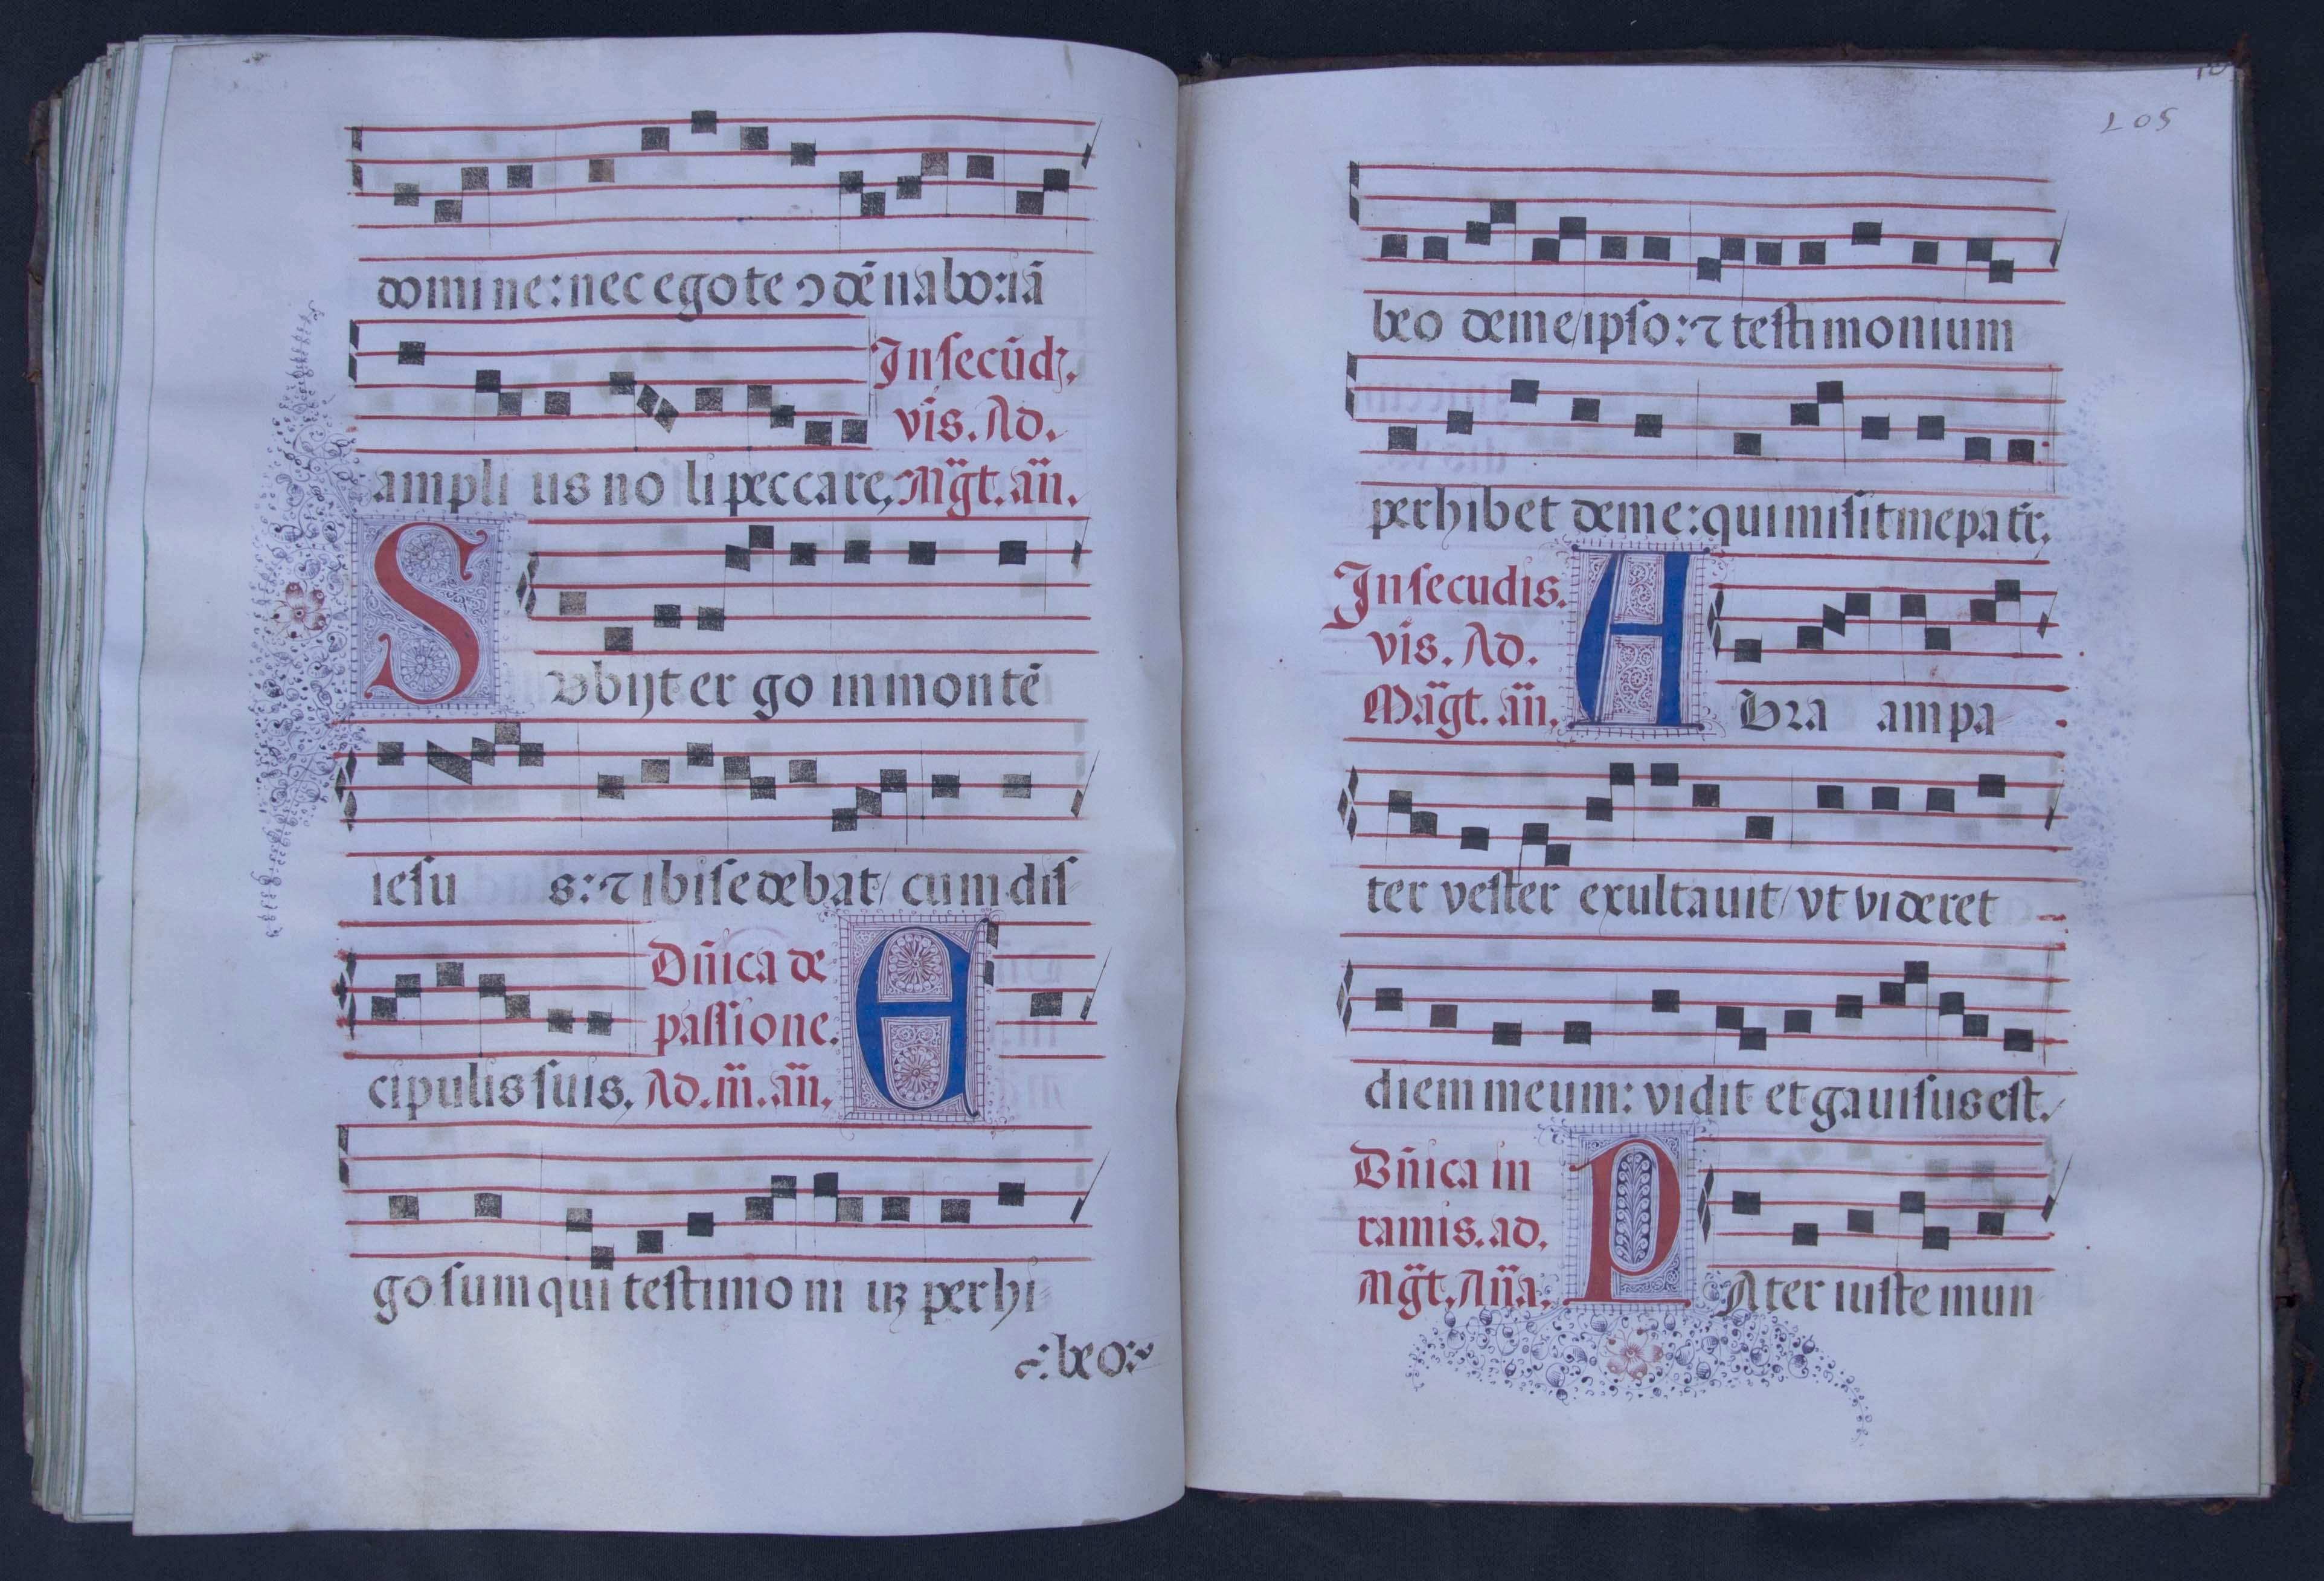 domine: nec ego te ↄdēnaboːiā
In secūdꝫ.
vīs. Ad.
amplius noli peccare, Māgt. añ.
SVbijt ergo in montē
iesus: ⁊ ibi sedebat / cum dis
Dñica de
passione.
cipulis suis. Ad. m̄. añ. E
go sum qui testimoniuꝫ perhi
beo
105
beo de me / ipso: ⁊ testimonium
perhibet de me: qui misit me pat̄r,
In secudis.
vīs. Ad.
Māgt. añ. ABraam pa
ter vester exultauit / vt videret
diem meum: vidit et gauisus est.
Dñica in
ramis. ad.
Māgt. Aña. PAter iuste mun